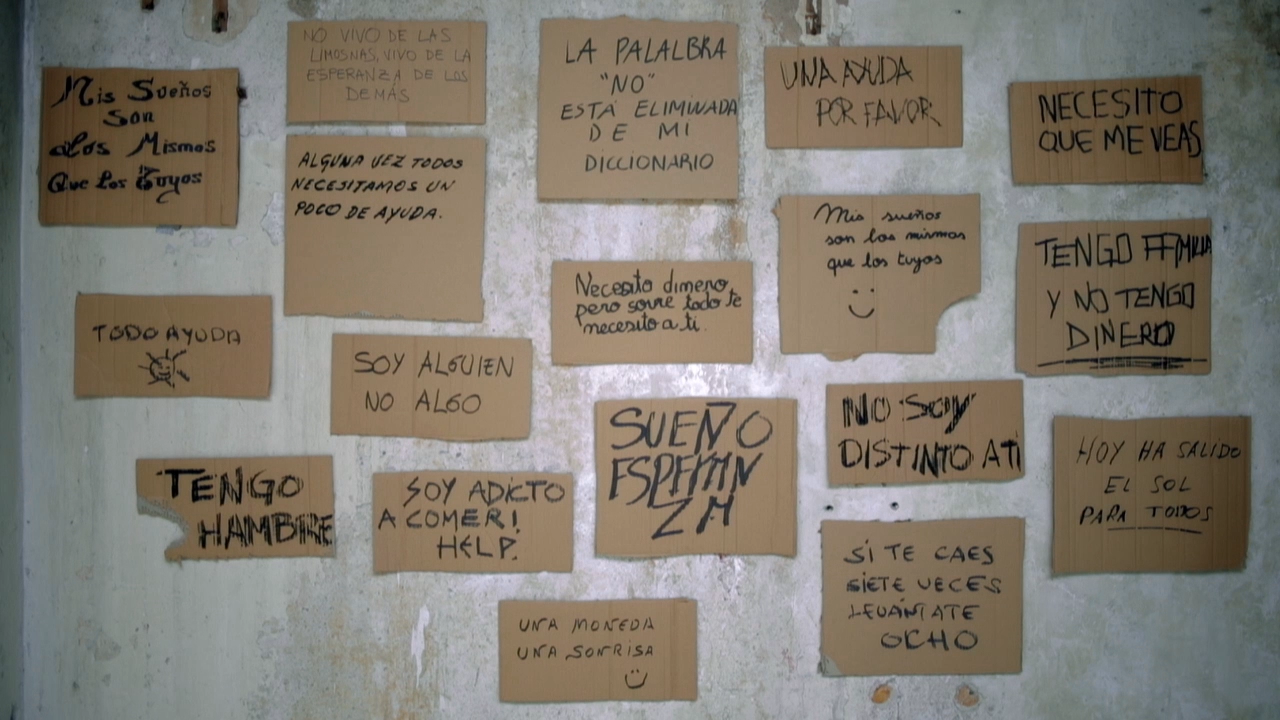 Mis Sueños
Son
Los Mismos
Que los Tuyos
NO VIVO DE LAS
LIMOSNAS, VIVO DE LA
ESPERANZA DE LOS
DEMÁS
LA PALALBRA
"NO"
ESTÁ ELIMINADA
DE MI
DICCIONARIO
UNA AYUDA
POR FAVOR
NECESITO
QUE ME VEAS
ALGUNA VEZ TODOS
NECESITAMOS UN
POCO DE AYUDA.
Mis sueños
son los mismos
que los tuyos
TENGO FFMILIA
Y NO TENGO
DINERO
Necesito dinero
pero sovre todo te
necesito a ti.
TODO AYUDA
SOY ALGUIEN
NO ALGO
SUEÑO
ESPERAN
ZA
NO SOY
DISTINTO A TI
HOY HA SALIDO
EL SOL
PARA TODOS
TENGO
HAMBRE
SOY ADICTO
A COMER!
HELP.
SI TE CAES
SIETE VECES
LEVÁNTATE
OCHO
UNA MONEDA
UNA SONRISA